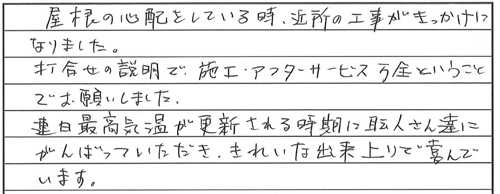 屋根の心配をしている時、近所の工事がきっかけに
なりました。
打合せの説明で、施工・アフターサービス万全ということ
でお願いしました。
連日最高気温が更新される時期に職人さん達に
がんばっていただき、きれいな出来上りで喜んで
います。